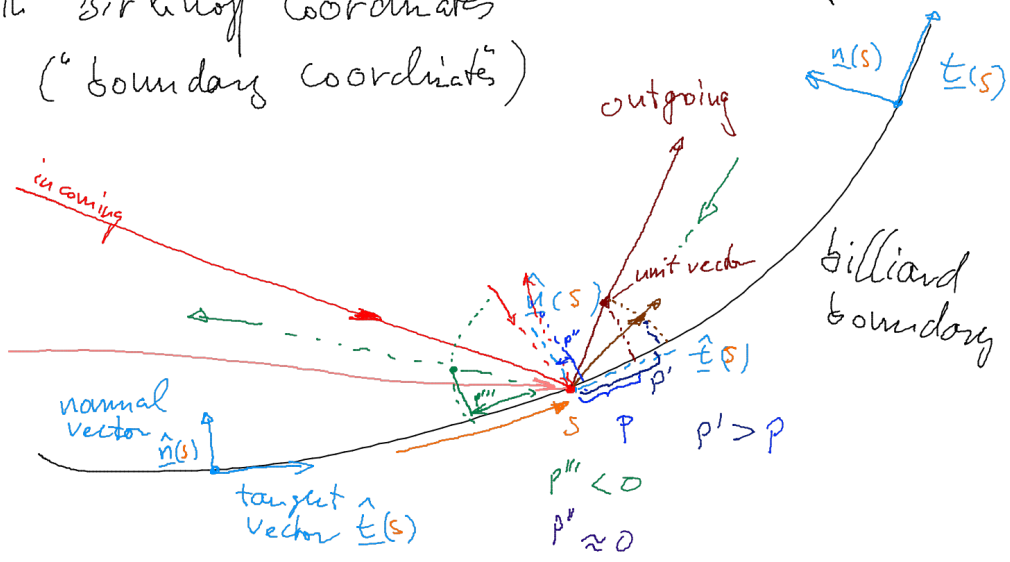 in Birkhoff coordinates
("boundary coordinates")
n(s)
t(s)
outgoing
incoming
unit vector
n̂(s)
billiard
boundary
p''
t̂(s)
p'
p'''
normal
vector
n̂(s)
s
p
p' > p
tangent
vector t̂(s)
p''' < 0
p'' ≈ 0